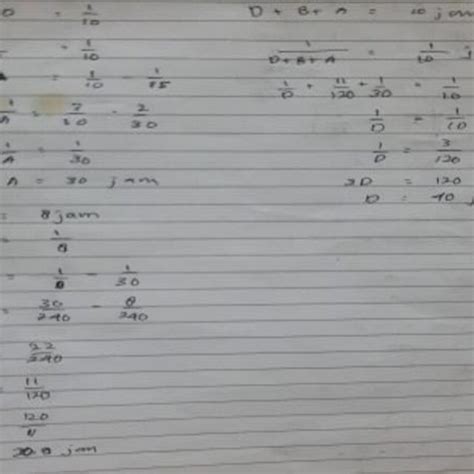 0 = 1/10
= 1/10
= 1/10 - 1/15
1/A = 3/30 - 2/30
1/A = 1/30
A = 30 jam
= 8 jam
= 1/8
= 1/8 - 1/30
= 30/240 - 8/240
22/240
11/120
120/11
jam
D + B + A = 10 jam
1/D+B+A = 1/10
1/D + 11/120 + 1/30 = 1/10
1/D = 1/10
1/D = 3/120
3D = 120
D = 40 j